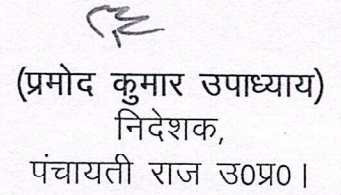 (प्रमोद कुमार उपाध्याय)
निदेशक,
पंचायती राज उ0प्र0।